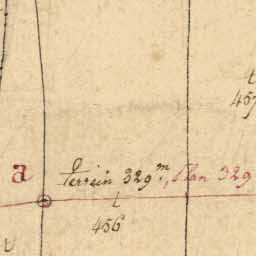 t
457
a Terrein 329 m, Plan 329
t
456
t